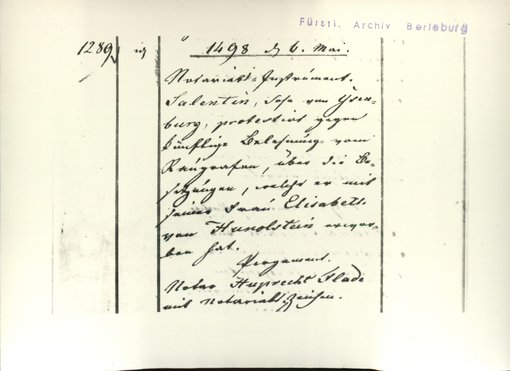 Fürstl. Archiv Berleburg
1289 1498 d 6. Mai.
Notariats-Instrument.
Salentin, Sohn von Ysen-
burg, protestirt gegen
künftige Belehnung vom
Raugrafen, über die Be-
sitzungen, welche er mit
seiner Frau Elisabeth
von Hunolstein erwor-
ben hat.
Pergament.
Notar Huprecht Flade
mit Notariats-Zeichen.